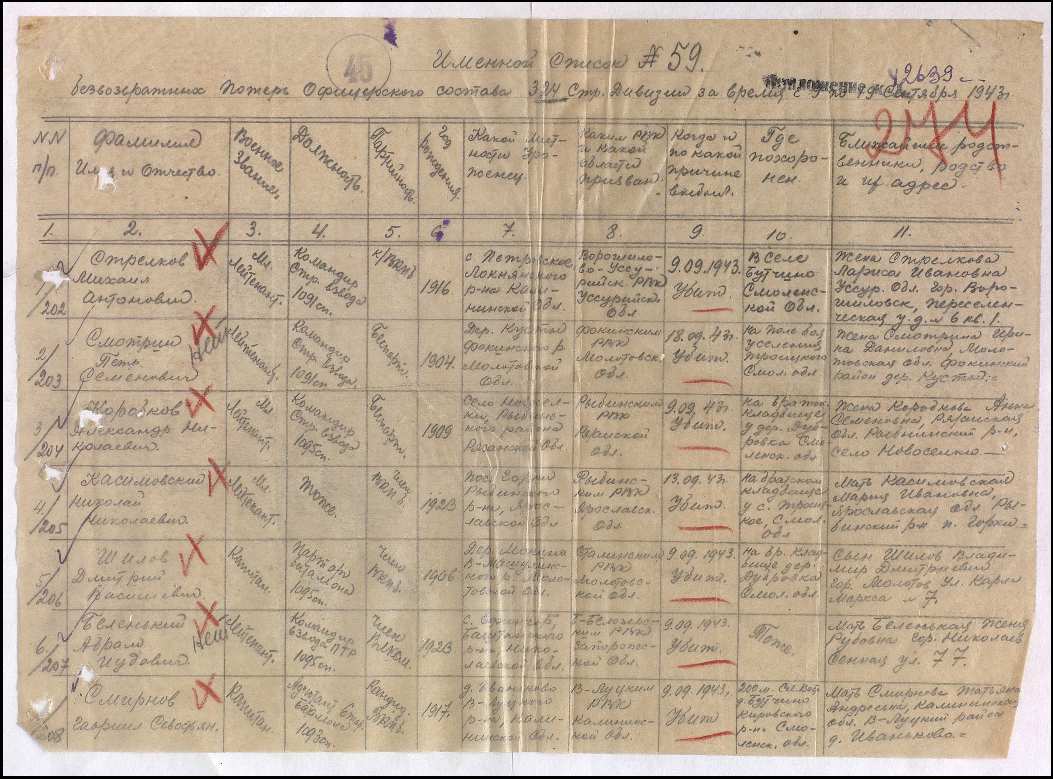 45
Именной Список № 59.
Приложение к вх
42639
безвозвратных Потерь Офицерского состава 324 Стр. Дивизии за время с 9 по 19 Сентября 1943г
274
NN п/п.
Фамилия Имя и Отчество.
Военное Звание.
Должность.
Партийность.
Год рождения.
Какой местности Уроженец
Каким РВК и какой области призван.
Когда и по какой причине выбыл.
Где похоронен.
Ближайшие родственники, родство и их адрес.
1. 2. 3. 4. 5. 6 7. 8. 9 10. 11.
1/202
Стрелков
Михаил
Антонович.
Мл.
Лейтенант.
Командир
Стр. Взвода
1091сп.
к/ВКПб
1916
с. Петровское
Локнянского
р-на Кали-
нинской Обл.
Ворошило-
во-Уссу-
рийск. РВК
Уссурийск.
Обл
9.09.1943.
Убит.
В селе
Бутчино
Смоленс-
кой Обл.
Жена Стрелкова
Лариса Ивановна
Уссур. Обл. Гор. Воро-
шиловск,
у. д. м 6 кв. 1.
2/203
Смотрин
Петр
Семенович
нет
Лейтенант.
Командир
Стр. Взвода.
1091сп
Беспарт.
1904.
Дер. Кустой
Фокинского р
Молотовской
Обл.
Фокинским
РВК
Молотовск.
Обл.
18.09.43г.
Убит.
на поле боя
Троицкого
Смол. обл
Жена Смотрина Ири-
на Даниловна, Моло-
товская Обл. Фокинский
район дер. Кустой =
3/204
Коробков
Александр Ни-
колаевич.
Мл
Лейтенант.
Командир
Стр. Взвода
1095сп.
Беспарт.
1909
Село
Рыбинс-
кого района
Рязанской
Обл.
Рыбинским
РВК
Рязанской
Обл.
9.09.43г
Убит.
на братск.
кладбище
у дер. Дуб-
ровка Смо-
ленск. обл.
Жена Коробкова Анна
Семеновна, Рязанская
Обл. Рыбинский р-н,
село
4/205
Касимовский
Николай
Николаевич.
Мл.
Лейтенант.
Тоже.
Член
ВКП
1923
Пос. Горки
Рыбинского
р-на, Ярос-
лавской Обл
Рыбинс-
ким РВК
Ярославск.
Обл.
13.09.43г.
Убит.
На братском
кладбище
у с. Троиц-
кое, Смол.
обл
Мать Касимовская
Мария Ивановна,
Ярославская Обл Ры-
бинский р-н п. Горки =
5/206
Шилов
Дмитрий
Васильевич.
Капитан.
Парторг
батальона
1095сп.
Член
ВКПб.
1906
Дер.
ного р. Моло-
товской Обл.
Сталинским
РВК
Молотовс-
кой обл.
9 09.1943.
Убит.
на бр. клад-
бище дер.
Дубровка
Смол. обл.
Сын Шилов Влади-
мир Дмитриевич
гор. Молотов ул. Карла
Маркса м 7.
6/207
Беленький
Абрам
Иудович.
нет
Лейтенант.
Командир
взвода ПТР
1095сп.
Член
ВЛКСМ.
1923
Баштанского
р-н Нико-
лаевской Обл.
Б-Белозерс-
ким РВК
Запорожс-
кой Обл.
9.09.1943.
Убит.
Тоже.
Мать Беленькая Женя
Рувовна гор. Николаев
Сенная ул. 77.
208
Смирнов
Гавриил Севостьян.
Капитан.
батальона
1093сп.
Кандид.
ВКПб.
1917.
д. Иваньково
В-Луцкого
р-н, Кали-
нинской Обл.
В-Луцким
РВК
Калининс-
кой обл.
9.09.1943,
Убит
200м.
д. Бутчино
Кировского
р-н Смо-
ленск. обл.
Мать Смирнова Татьяна
Андреевн, Калининск
обл. В-Луцкий район
д. Иваньково =